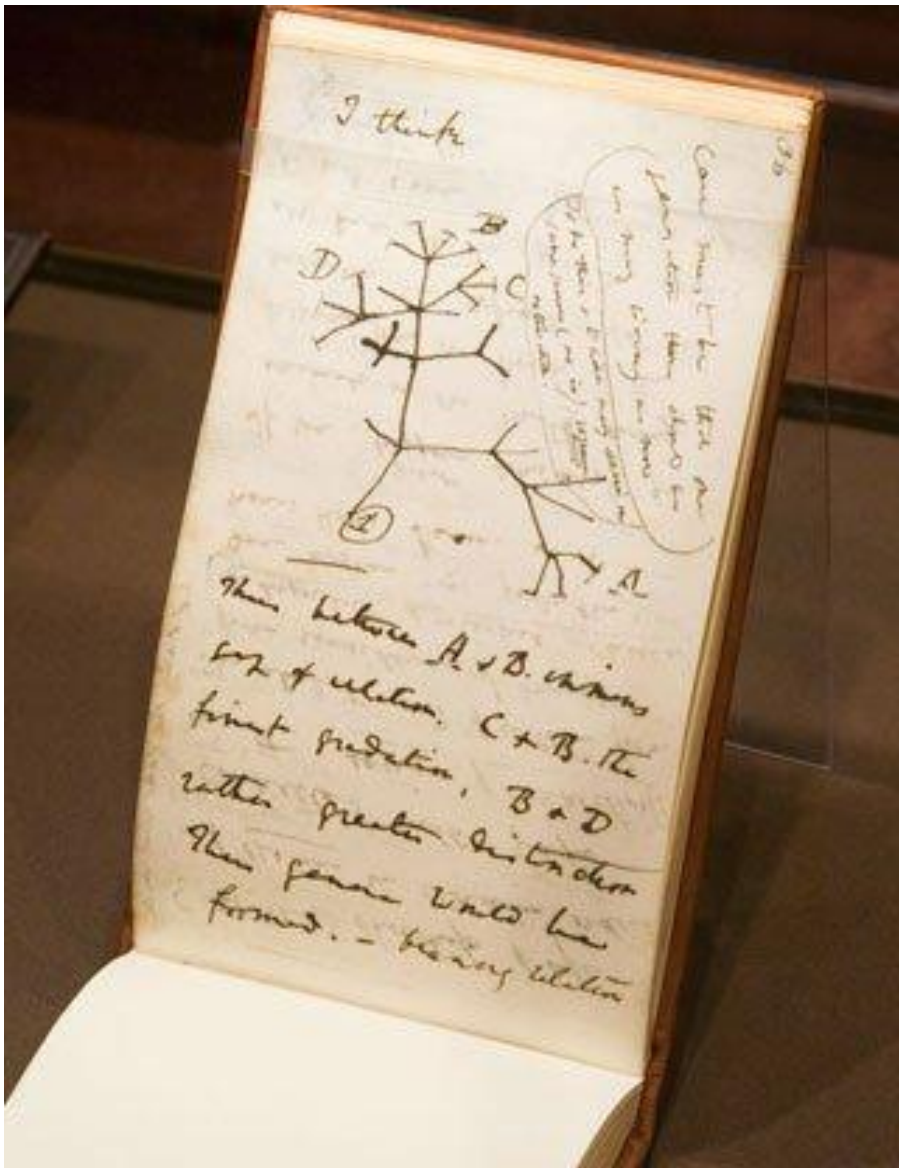 I think
36
Case must be that one
generation then should be
as many living as now
To do this & to have many species in
same genus (as is) requires
extinction
B
D
C
1
A
Thus between A & B. immens
gap of relation. C & B. the
finest gradation, B & D
rather greater distinction
Thus genera would be
formed. — bearing relation